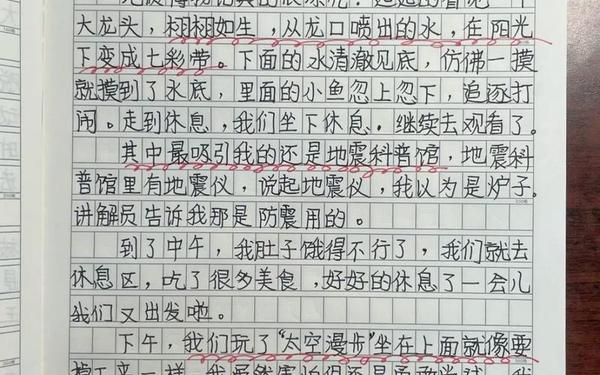 大龙头，栩栩如生，从龙口喷出的水，在阳光
下变成七彩带。下面的水清澈见底，仿佛一摸
就摸到了水底，里面的小鱼忽上忽下，追逐打
闹。走到休息，我们坐下休息。继续去观看了。
其中最吸引我的还是地震科普馆，地震科
普馆里有地震仪，说起地震仪，我以为是炉子。
讲解员告诉我那是防震用的。
到了中午，我肚子饿得不行了，我们就去
休息区，吃了很多美食，好好的休息了一会儿
我们又出发啦。
下午，我们玩了“太空漫步”坐在上面就像要
一样，我虽然害怕但还是勇敢尝试。我